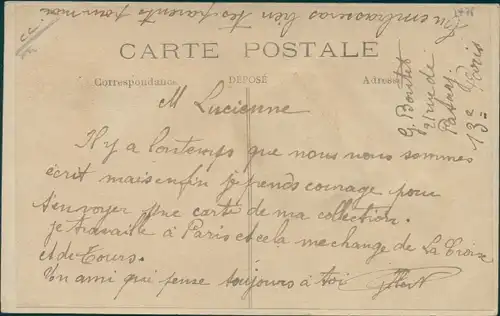 Tu embrasseras bien tes parents pour moi
CARTE POSTALE
Correspondance
DÉPOSÉ
Adresse
G. Boutet
21 rue de
Patay
13e Paris
M Lucienne
Il y a lontemps que nous nous sommes
écrit mais enfin je prends courage pour
t'envoyer une carte de ma collection.
je travaille à Paris et cela me change de La Croix
et de Tours.
Un ami qui pense toujours à toi